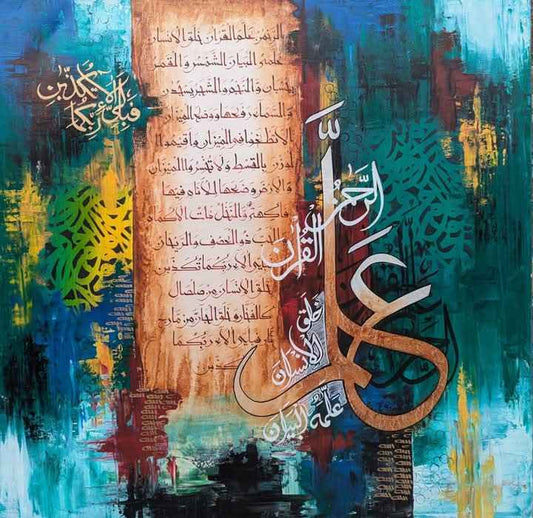 فَبِأَيِّ آلَاءِ رَبِّكُمَا تُكَذِّبٰنِ
الرحمن علم القرآن خلق الانسان
علمه البيان الشمس و القمر
بحسبان والنجم والشجر يسجدن
والسماء رفعها ووضع الميزان
الا تطغوا في الميزان واقيموا
الوزن بالقسط ولا تخسروا الميزان
والارض وضعها للانام فيها
فاكهة والنخل ذات الاكمام
والحب ذو العصف والريحان
فباي الاء ربكما تكذبن
خلق الانسان من صلصال
كالفخار و خلق الجان من مارج
نار فباي الاء ربكما
تكذبن
الرَّحْمٰنُ
عَلَّمَ
الْقُرْآنَ
خَلَقَ
الْإِنْسَانَ
عَلَّمَهُ الْبَيَانَ